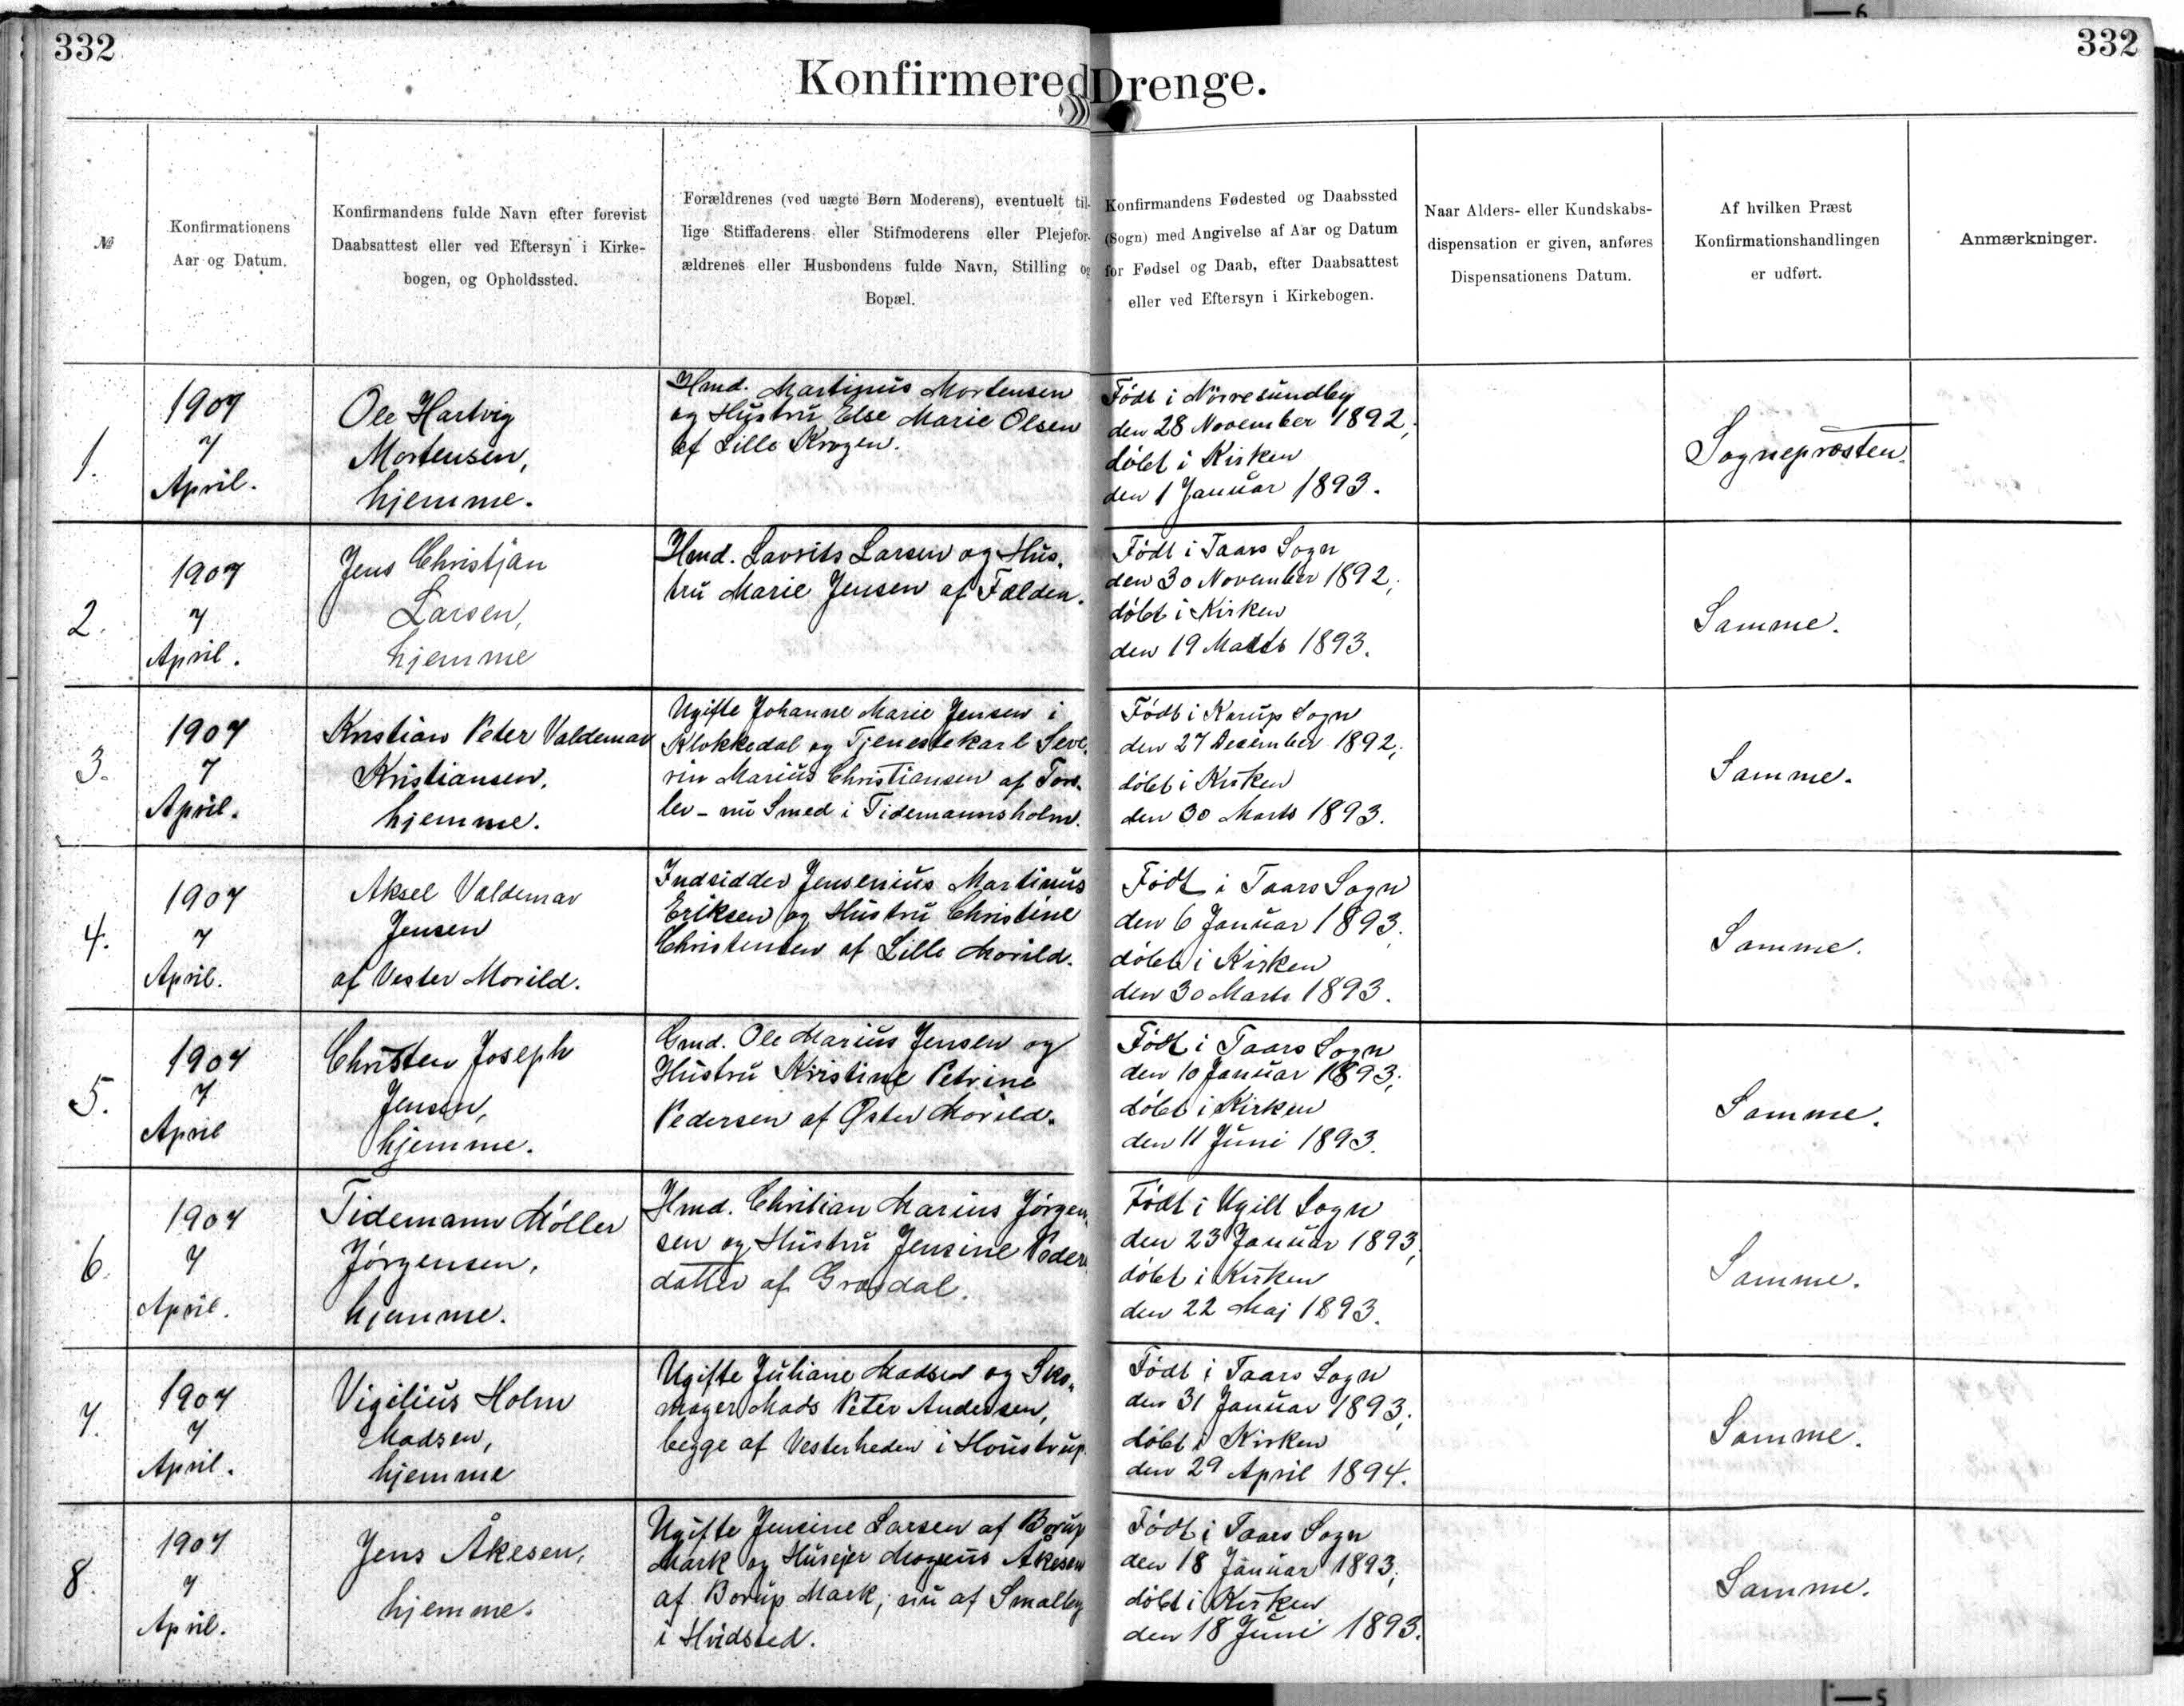 332
332
Konfirmered Drenge.
№
Konfirmationens
Aar og Datum.
Konfirmandens fulde Navn efter forevist
Daabsattest eller ved Eftersyn i Kirke-
bogen, og Opholdssted.
Forældrenes (ved uægte Børn Moderens), eventuelt til-
lige Stiffaderens eller Stifmoderens eller Plejefor-
ældrenes eller Husbondens fulde Navn, Stilling og
Bopæl.
Konfirmandens Fødested og Daabssted
(Sogn) med Angivelse af Aar og Datum
for Fødsel og Daab, efter Daabsattest
eller ved Eftersyn i Kirkebogen.
Naar Alders- eller Kundskabs-
dispensation er given, anføres
Dispensationens Datum.
Af hvilken Præst
Konfirmationshandlingen
er udført.
Anmærkninger.
1.
1907
7
April.
Ole Hartvig
Mortensen,
hjemme.
Hmd. Martinus Mortensen
og Hustru Else Marie Olsen
af Lille Krogen.
Født i Nörresundby
den 28 November 1892,
döbt i Kirken
den 1 Januar 1893.
Sognepræsten.
2.
1907
7
April.
Jens Christjan
Larsen,
hjemme
Hmd. Lavrits Larsen og Hus-
tru Marie Jensen af Fælden.
Födt i Taars Sogn
den 30 November 1892,
döbt i Kirken
den 19 Marts 1893.
Samme.
3.
1907
7
April.
Kristian Peter Valdemar
Kristiansen,
hjemme.
Ugifte Johanne Marie Jensen i
Klokkedal og Tjenestekarl Seve-
rin Marius Christiansen af Tors-
lev - nu Smed i Tidemannsholm.
Födt i Karup Sogn
den 27 December 1892,
döbt i Kirken
den 30 Marts 1893.
Samme.
4.
1907
7
April.
Aksel Valdemar
Jensen
af Vester Morild.
Indsidder Jensenius Martinus
Eriksen og Hustru Christine
Christensen af Lille Morild.
Födt i Taars Sogn
den 6 Januar 1893.
döbt i Kirken
den 30 Marts 1893.
Samme.
5.
1907
7
April
Christen Joseph
Jensen,
hjemme.
Gmd. Ole Marius Jensen og
Hustru Kristine Petrine
Pedersen af Øster Morild.
Födt i Taars Sogn
den 10 Januar 1893;
döbt i Kirken
den 11 Juni 1893.
Samme.
6.
1907
7
April.
Tidemann Möller
Jörgensen,
hjemme.
Hmd. Christian Marius Jörgen-
sen og Hustru Jensine Peder-
datter af Græsdal.
Födt i Ugilt Sogn
den 23 Januar 1893,
döbt i Kirken
den 22 Maj 1893.
Samme.
7.
1907
7
April.
Vigilius Holm
Madsen,
hjemme
Ugifte Juliane Madsen og Sko-
mager Mads Peter Andersen,
begge af Vesterheden i Houstrup.
Födt i Taars Sogn
den 31 Januar 1893;
döbt i Kirken
den 29 April 1894.
Samme.
8.
1907
7
April.
Jens Åkesen,
hjemme.
Ugifte Jensine Larsen af Borup
Mark og Husejer Mogens Åkesen
af Borup Mark, nu af Smalby
i Hvidsted.
Födt i Taars Sogn
den 18 Januar 1893;
döbt i Kirken
den 18 Juni 1893.
Samme.
6
5